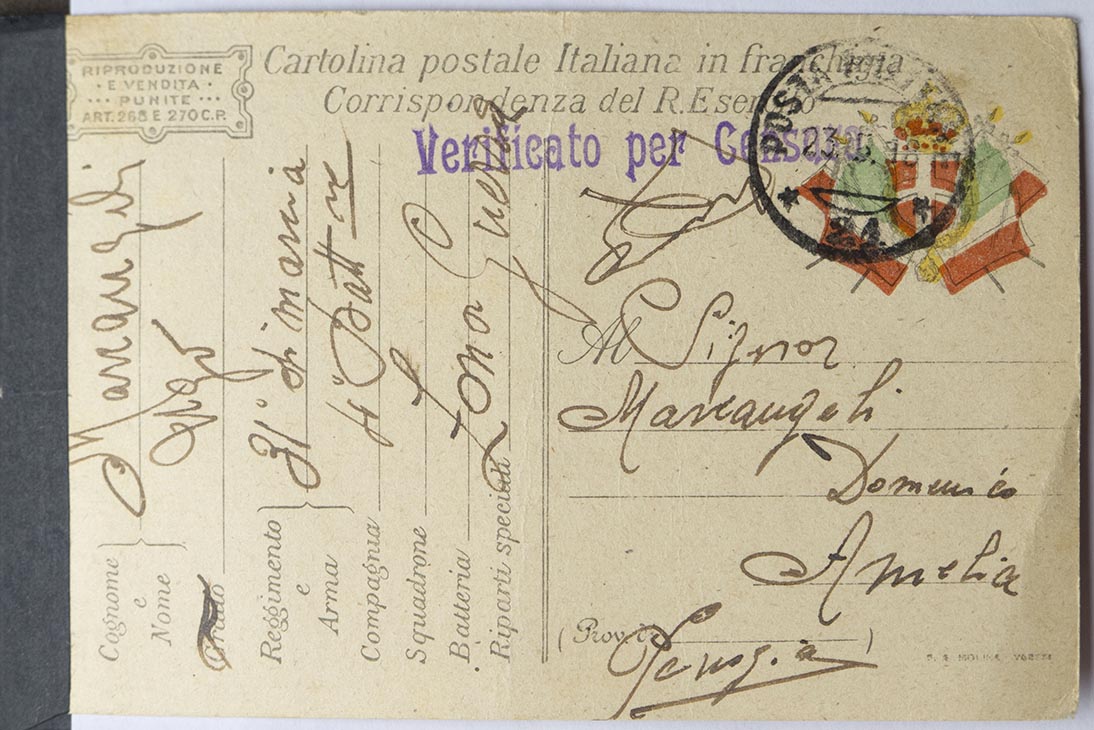 RIPRODUZIONE
E VENDITA
PUNITE
ART. 268 E 270 C.P.
Cartolina postale Italiana in franchigia
Corrispondenza del R. Esercito
Verificato per Censura
POSTA
23
24
Al Signor
Marcangeli
Domenico
Amelia
(Prov. di
Perugia
)
Cognome
e
Nome
Grado
Reggimento
e
Arma
31° di marcia
Compagnia
4ª Batt ne
Squadrone
Batteria
Zona Guerra
Riparti speciali